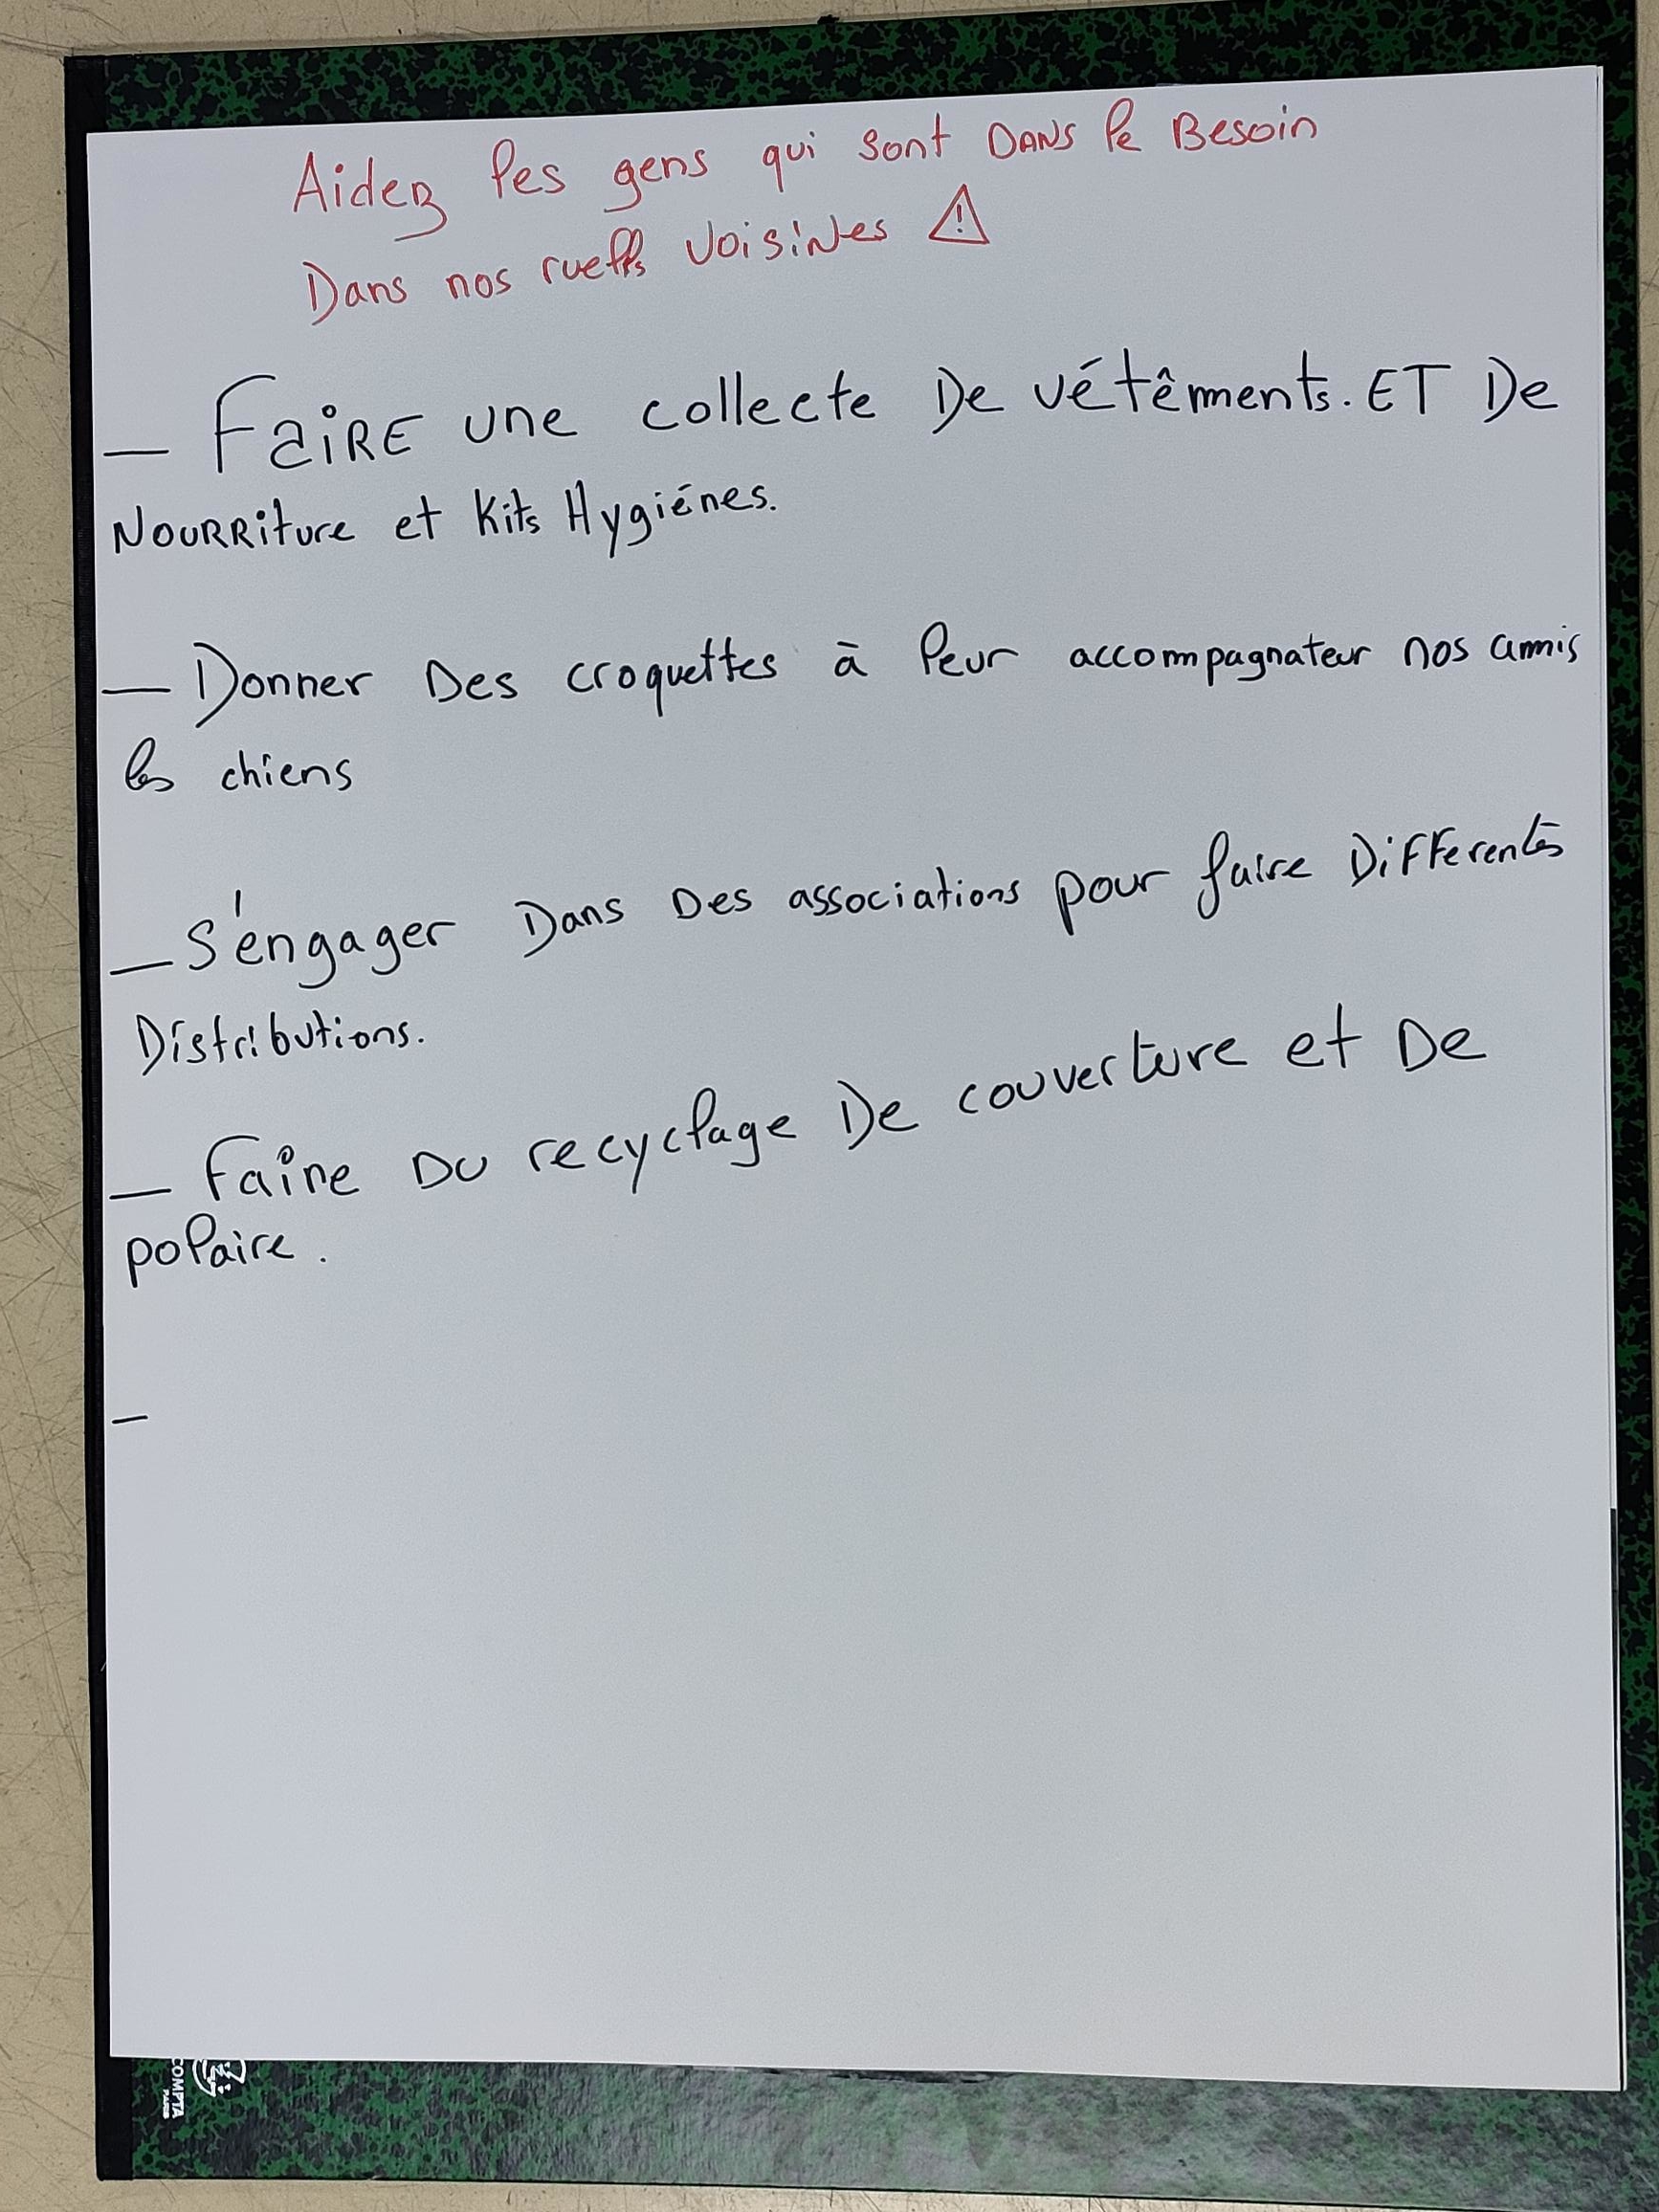 Aidez les gens qui sont DANS le Besoin
Dans nos ruelles voisines ⚠
— FaiRE une collecte De vétêments. ET De
NOURRiture et Kits Hygiénes.
— Donner Des croquettes à leur accompagnateur nos amis
les chiens
— S'engager Dans Des associations pour faire Differentes
Distributions.
— Faire DU recyclage De couverture et De
polaire.
—
COMPTA
PARIS